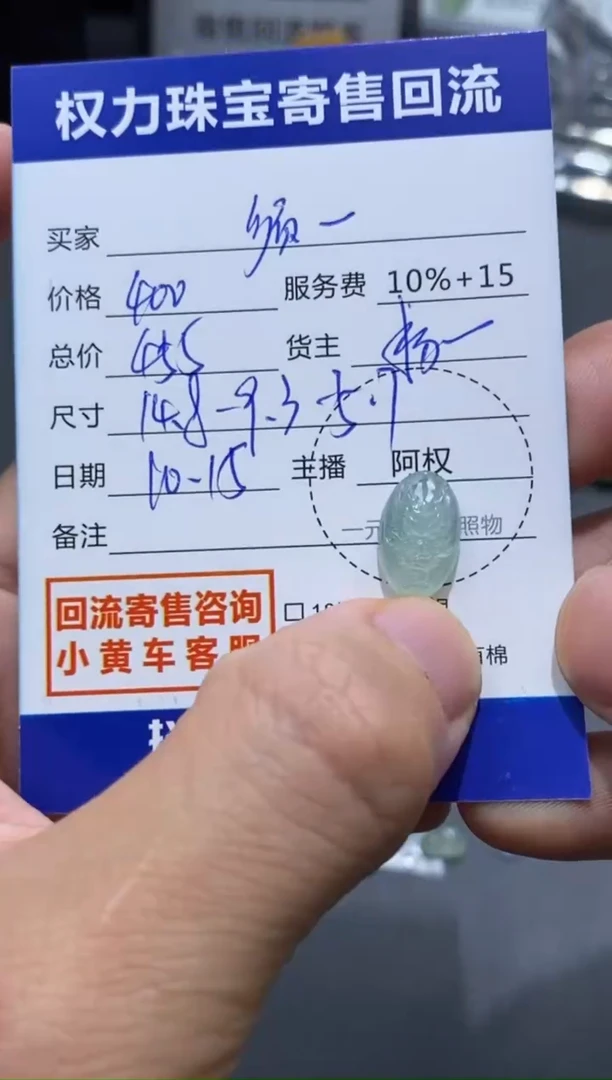 权力珠宝寄售回流
买家 颜一
价格 400 服务费 10%+15
总价 455 货主 杨一
尺寸 14.8-9.3-5.7
日期 10-15 主播 阿权
备注 一元 照物
回流寄售咨询
小黄车客服
有棉